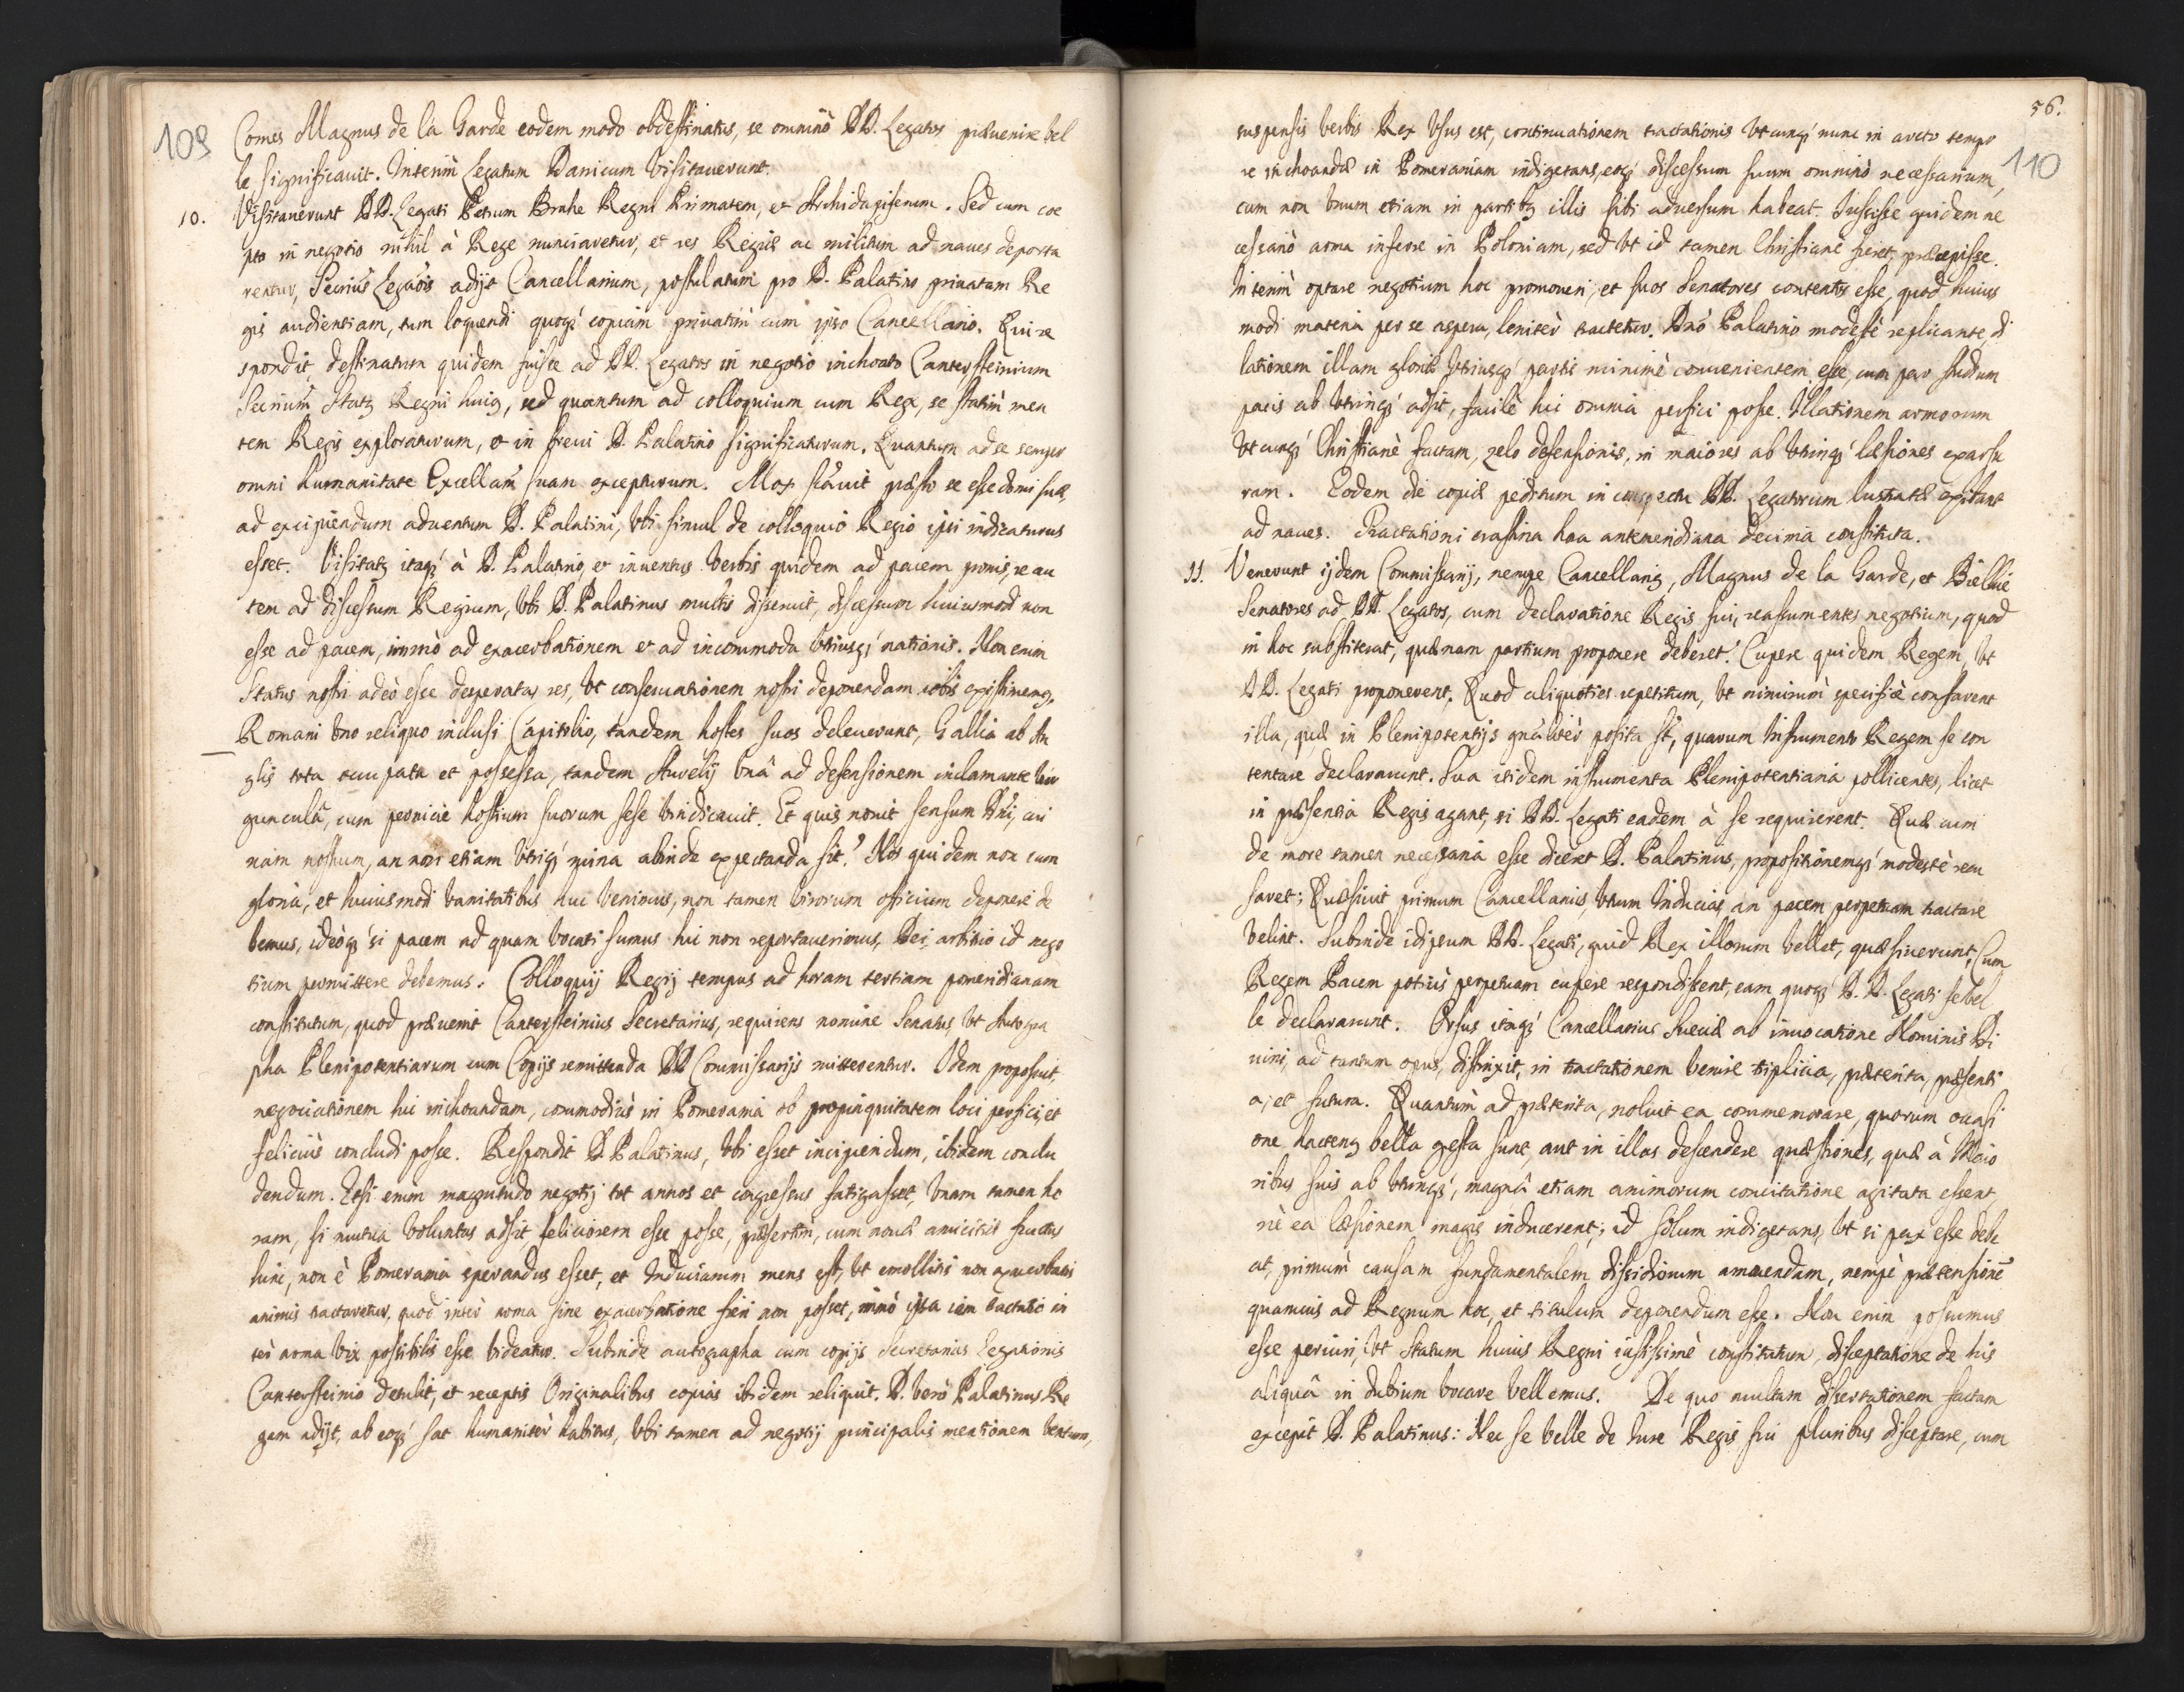 109
Comes Magnus de la Garde eodem modo obdestinatus, se omninò DD. Legatos præuenire vel
le significauit. Interim Legatum Danicum visitauerunt.
10. Visitauerunt DD. Legati Petrum Brahe Regni Primatem, et Archidapiferum. Sed cum coe
pto in negotio nihil à Rege nunciaretur, et res Regiæ ac militum ad naues deporta
rentur, Secrius Legaõis adijt Cancellarium, postulatum pro D. Palatino priuatam Re
gis audientiam, tum loquendi quoq́ copiam priuatim cum ipso Cancellario. Qui re
spondit, destinatum quidem fuisse ad DD. Legatos in negotio inchoato Cantersteinium
Secrium Statq Regni huiq, sed quantum ad colloquium cum Rege, se statim men
tem Regis exploraturum, et in breui D. Palatino significaturum. Quantum ad se semper
omni humanitate Excellam̃ suam excepturum. Mox sciuit præsto se esse domi suæ
ad excipiendum aduentum D. Palatini, vbi simul de colloquio Regio ipsi indicaturus
esset. Visitatq itaq́ à D. Palatino, et inuentus verbis quidem ad pacem pronis, re au
tem ad discessum Regium, vbi D. Palatinus multis disseruit, discessum huiusmodi non
esse ad pacem, immò ad exacerbationem et ad incommoda vtriusq́ nationis. Non enim
Status nostri adeò esse desperatas res, vt conseruationem nostri deponendam vobis existimemq,
Romani vno reliquo inclusi Capitolio, tandem hostes suos deleuerunt, Gallia ab An
glis tota occupata et possessa, tandem Aurelij vnâ ad defensionem inclamante vir
gunculâ, cum pernicie hostium suorum sese vindicauit. Et quis nouit sensum Dñi, cui
nam nostrum, an non etiam vtriq́ ruina abinde expectanda sit? Nos quidem non cum
gloria, et huiusmodi vanitatibus huc venimus, non tamen virorum officium deponere de
bemus, ideòq́ si pacem ad quam vocati sumus hic non reportauerimus, Dei arbitrio id nego
tium permittere debemus. Colloquij Regij tempus ad horam tertiam pomeridianam
constitutum, quod præuenit Cantersteinius Secretarius, requirens nomine Senatus, vt Autogra
pha Plenipotentiarum cum Copijs remittenda DD Commissarijs mitterentur. Idem proposuit,
negociationem hic inchoandam, commodiùs in Pomerania ob propinquitatem loci perfici, et
feliciùs concludi posse. Respondit D. Palatinus, vbi esset incipiendum, ibidem conclu
dendum. Etsi enim magnitudo negotij tot annos et congressus fatigasset, vnam tamen ho
ram, si mutua voluntas adsit feliciorem esse posse, præsertim, cum nouæ amicitiæ fructus
hinc, non è Pomerania sperandus esset, et Induciarum mens est, vt emollitis non exacerbatis
animis tractaretur, quod inter arma sine exacerbatione fieri non posset, immò ipsa iam tractatio in
ter arma vix possibilis esse videatur. Subinde autographa cum copijs Secretarius Legationis
Cantersteinio detulit, et receptis Originalibus copias ibidem reliquit. D. verò Palatinus Re
gem adijt, ab eoq́ sat humaniter habitus, vbi tamen ad negotij principalis mentionem ventum,
56.
110
suspensis verbis Rex vsus est, continuationem tractationis vtcunq́ nunc in arcto tempo
re inchoandæ in Pomeraniam indigetans, eoq́ discessum suum omninò necessarium,
cum non vnum etiam in partibq illis sibi aduersum habeat. Iussisse quidem ne
cessariò arma inferre in Poloniam, sed vt id tamen Christianè fieret, præcepisse.
Interim optare negotium hoc promoueri, et suos Senatores contentos esse, quod huius
modi materia per se aspera, leniter tractetur. Dno Palatino modestè replicante, di
lationem illam gloriæ vtriusq́ partis minimè conuenientem esse, cum par studium
pacis ab vtrinq́ adsit, facilè hic omnia perfici posse. Illationem armorum
vtcunq́ Christianè factam, zelo defensionis, in maiores ab vtrinq́ læsiones exarsu
ram. Eodem die copiæ peditum in conspectu DD. Legatorum lustratæ exibant
ad naues. Tractationi crastina hora antemeridiana decima constituta.
11. Venerunt ijdem Commissarij, nempe Cancellariq, Magnus de la Garde, et Bielkie
Senatores ad DD. Legatos, cum declaratione Regis sui, reassumentes negotium, quod
in hoc substiterat, quænam partium proponere deberet? Cupere quidem Regem, vt
DD. Legati proponerent. Quod aliquoties repetitum, vt nimirum specificè constarent
illa, quæ in Plenipotentijs gnãliter posita st̃, quarum Instrumento Regem se con
tentare declararunt. Sua itidem instrumenta Plenipotentiaria pollicentes, licet
in præsentia Regis agant, si DD. Legati eadem à se requirerent. Quæ cum
de more tamen necessaria esse diceret D. Palatinus, propositionemq́ modestè recu
saret; Quæsiuit primum Cancellarius, vtrum Inducias, an pacem perpetuam tractare
velint. Subinde idipsum DD. Legati, quid Rex illorum vellet, quæsiuerunt, Cum
Regem Pacem potiùs perpetuam cupere respondissent, eam quoq́ D.D. Legati se vel
le declararunt. Orsus itaq́ Cancellarius Sueciæ ab inuocatione Nominis Di
uini, ad tantum opus, distinxit, in tractationem venire triplicia, præterita, præsenti
a, et futura. Quantum ad præterita, noluit ea commemorare, quorum occasi
one hactenq bella gesta sunt, aut in illas descendere quæstiones, quæ à Maio
ribus suis ab vtrinq́, magnâ etiam animorum concitatione agitata essent,
ne ea læsionem magis inducerent; id solum indigetans, vt si pax esse debe
at, primum causam fundamentalem dissidiorum amouendam, nempè prætensionẽ
quamuis ad Regnum hoc, et titulum deponendum esse. Non enim possumus
esse periuri, vt Statum huius Regni iustissimè constitutum, disceptatione de his
aliquâ in dubium vocare vellemus. De quo multam dissertationem factam
excepit D. Palatinus: Nec se velle de Iure Regis sui pluribus disceptare, cum